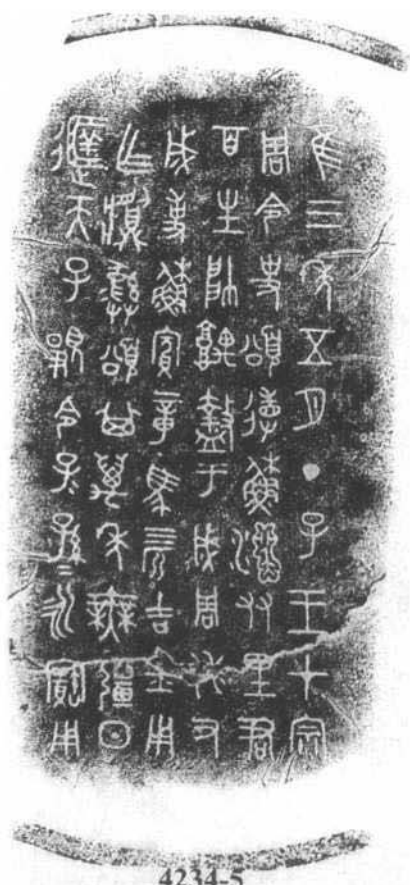 隹三年五月丁子王才宗
周令史頌𢓊穌灋友里君
百生帥䚄盩于成周休又
成事穌賓章馬三匹吉金用
乍䵼彝頌其萬年無疆日
𨒙天子顯令子=孫=永寶用
4234-5